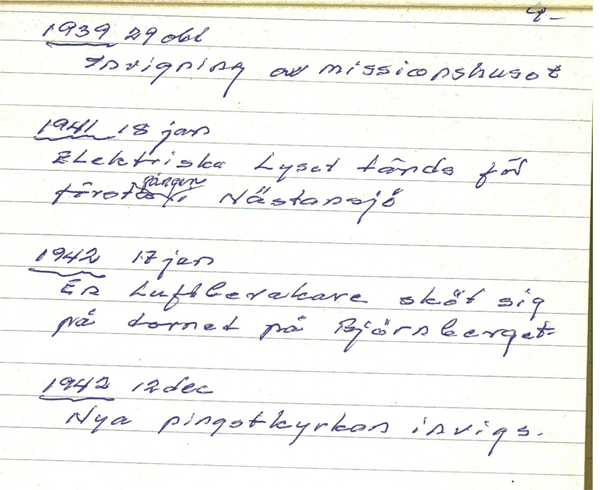 4-
1939 29 okt
Invigning av missionshuset
1941 18 jan
Elektriska Lyset tänds för
första gången i Nästansjö
1942 17 jan
En Luftbevakare sköt sig
på tornet på Björnberget
1942 12 dec
Nya pingstkyrkan invigs.